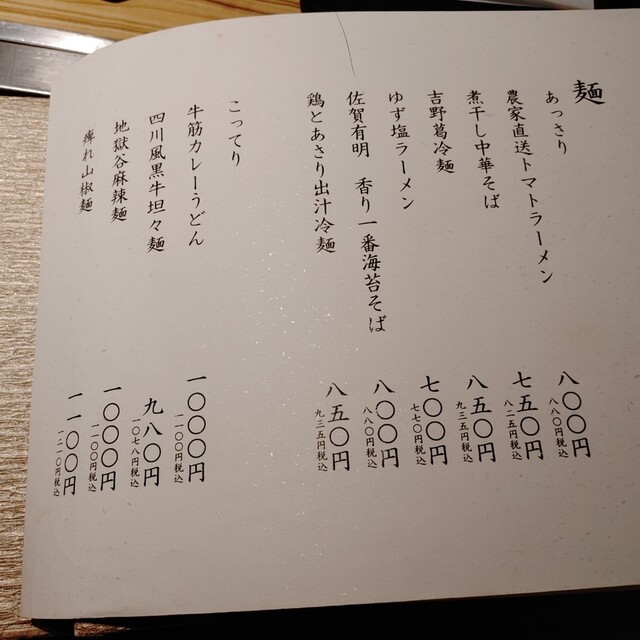 麺
あっさり
農家直送トマトラーメン
八〇〇円
八八〇円税込
煮干し中華そば
七五〇円
八二五円税込
吉野葛冷麺
八五〇円
九三五円税込
ゆず塩ラーメン
七〇〇円
七七〇円税込
佐賀有明 香り一番海苔そば
八〇〇円
八八〇円税込
鶏とあさり出汁冷麺
八五〇円
九三五円税込
こってり
牛筋カレーうどん
一〇〇〇円
一一〇〇円税込
四川風黒牛坦々麺
九八〇円
一〇七八円税込
地獄谷麻辣麺
一〇〇〇円
一一〇〇円税込
痺れ山椒麺
一一〇〇円
一二一〇円税込